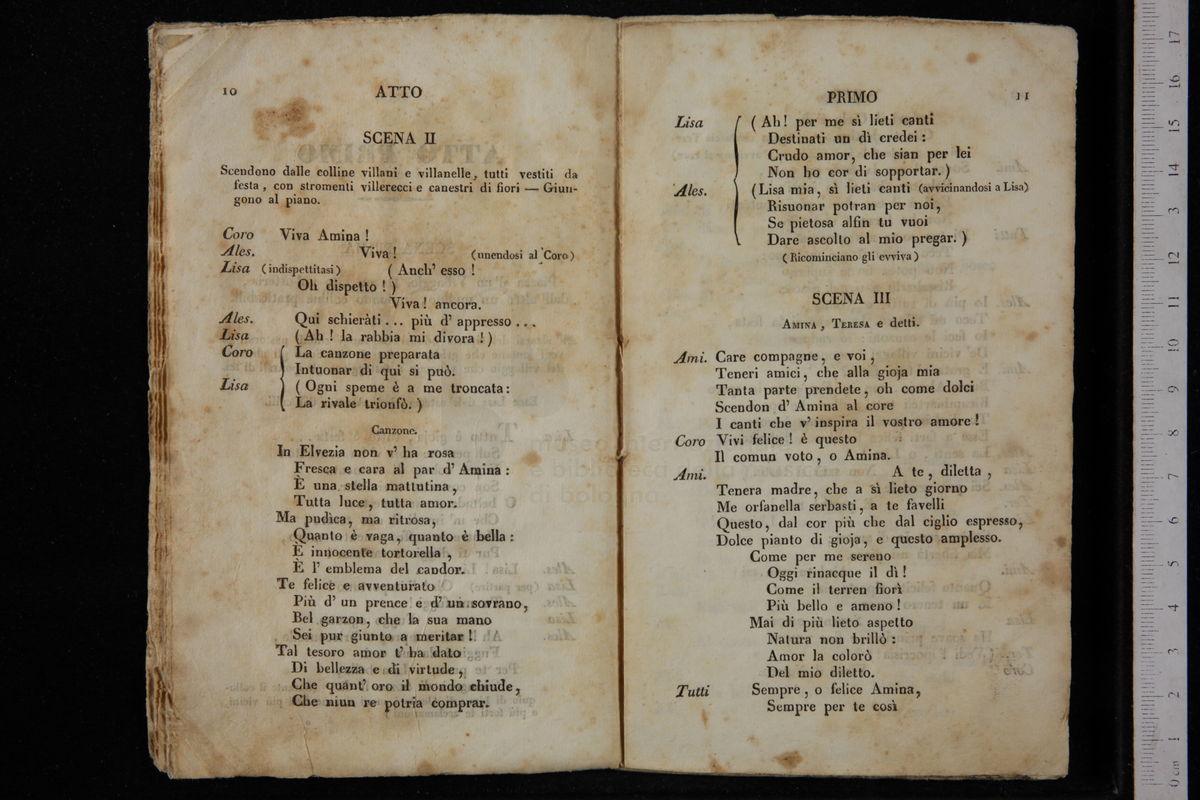 10 ATTO
SCENA II
Scendono dalle colline villani e villanelle, tutti vestiti da
festa, con stromenti villerecci e canestri di fiori — Giun-
gono al piano.
Coro Viva Amina!
Ales. Viva! (unendosi al Coro)
Lisa (indispettitasi) (Anch' esso!
Oh dispetto!)
Viva! ancora.
Ales. Qui schieràti... più d' appresso...
Lisa (Ah! la rabbia mi divora!)
Coro La canzone preparata
Intuonar di qui si può.
Lisa (Ogni speme è a me troncata:
La rivale trionfò.)
Canzone.
In Elvezia non v' ha rosa
Fresca e cara al par d' Amina:
È una stella mattutina,
Tutta luce, tutta amor.
Ma pudica, ma ritrosa,
Quanto è vaga, quanto è bella:
È innocente tortorella,
È l' emblema del candor.
Te felice e avventurato
Più d' un prence e d' un sovrano,
Bel garzon, che la sua mano
Sei pur giunto a meritar!
Tal tesoro amor t' ha dato
Di bellezza e di virtude,
Che quant' oro il mondo chiude,
Che niun re potria comprar.
PRIMO 11
Lisa (Ah! per me sì lieti canti
Destinati un dì credei:
Crudo amor, che sian per lei
Non ho cor di sopportar.)
Ales. (Lisa mia, sì lieti canti (avvicinandosi a Lisa)
Risuonar potran per noi,
Se pietosa alfin tu vuoi
Dare ascolto al mio pregar.)
(Ricominciano gli evviva)
SCENA III
AMINA, TERESA e detti.
Ami. Care compagne, e voi,
Teneri amici, che alla gioja mia
Tanta parte prendete, oh come dolci
Scendon d' Amina al core
I canti che v' inspira il vostro amore!
Coro Vivi felice! è questo
Il comun voto, o Amina.
Ami. A te, diletta,
Tenera madre, che a sì lieto giorno
Me orfanella serbasti, a te favelli
Questo, dal cor più che dal ciglio espresso,
Dolce pianto di gioja, e questo amplesso.
Come per me sereno
Oggi rinacque il dì!
Come il terren fiorì
Più bello e ameno!
Mai di più lieto aspetto
Natura non brillò:
Amor la colorò
Del mio diletto.
Tutti Sempre, o felice Amina,
Sempre per te così